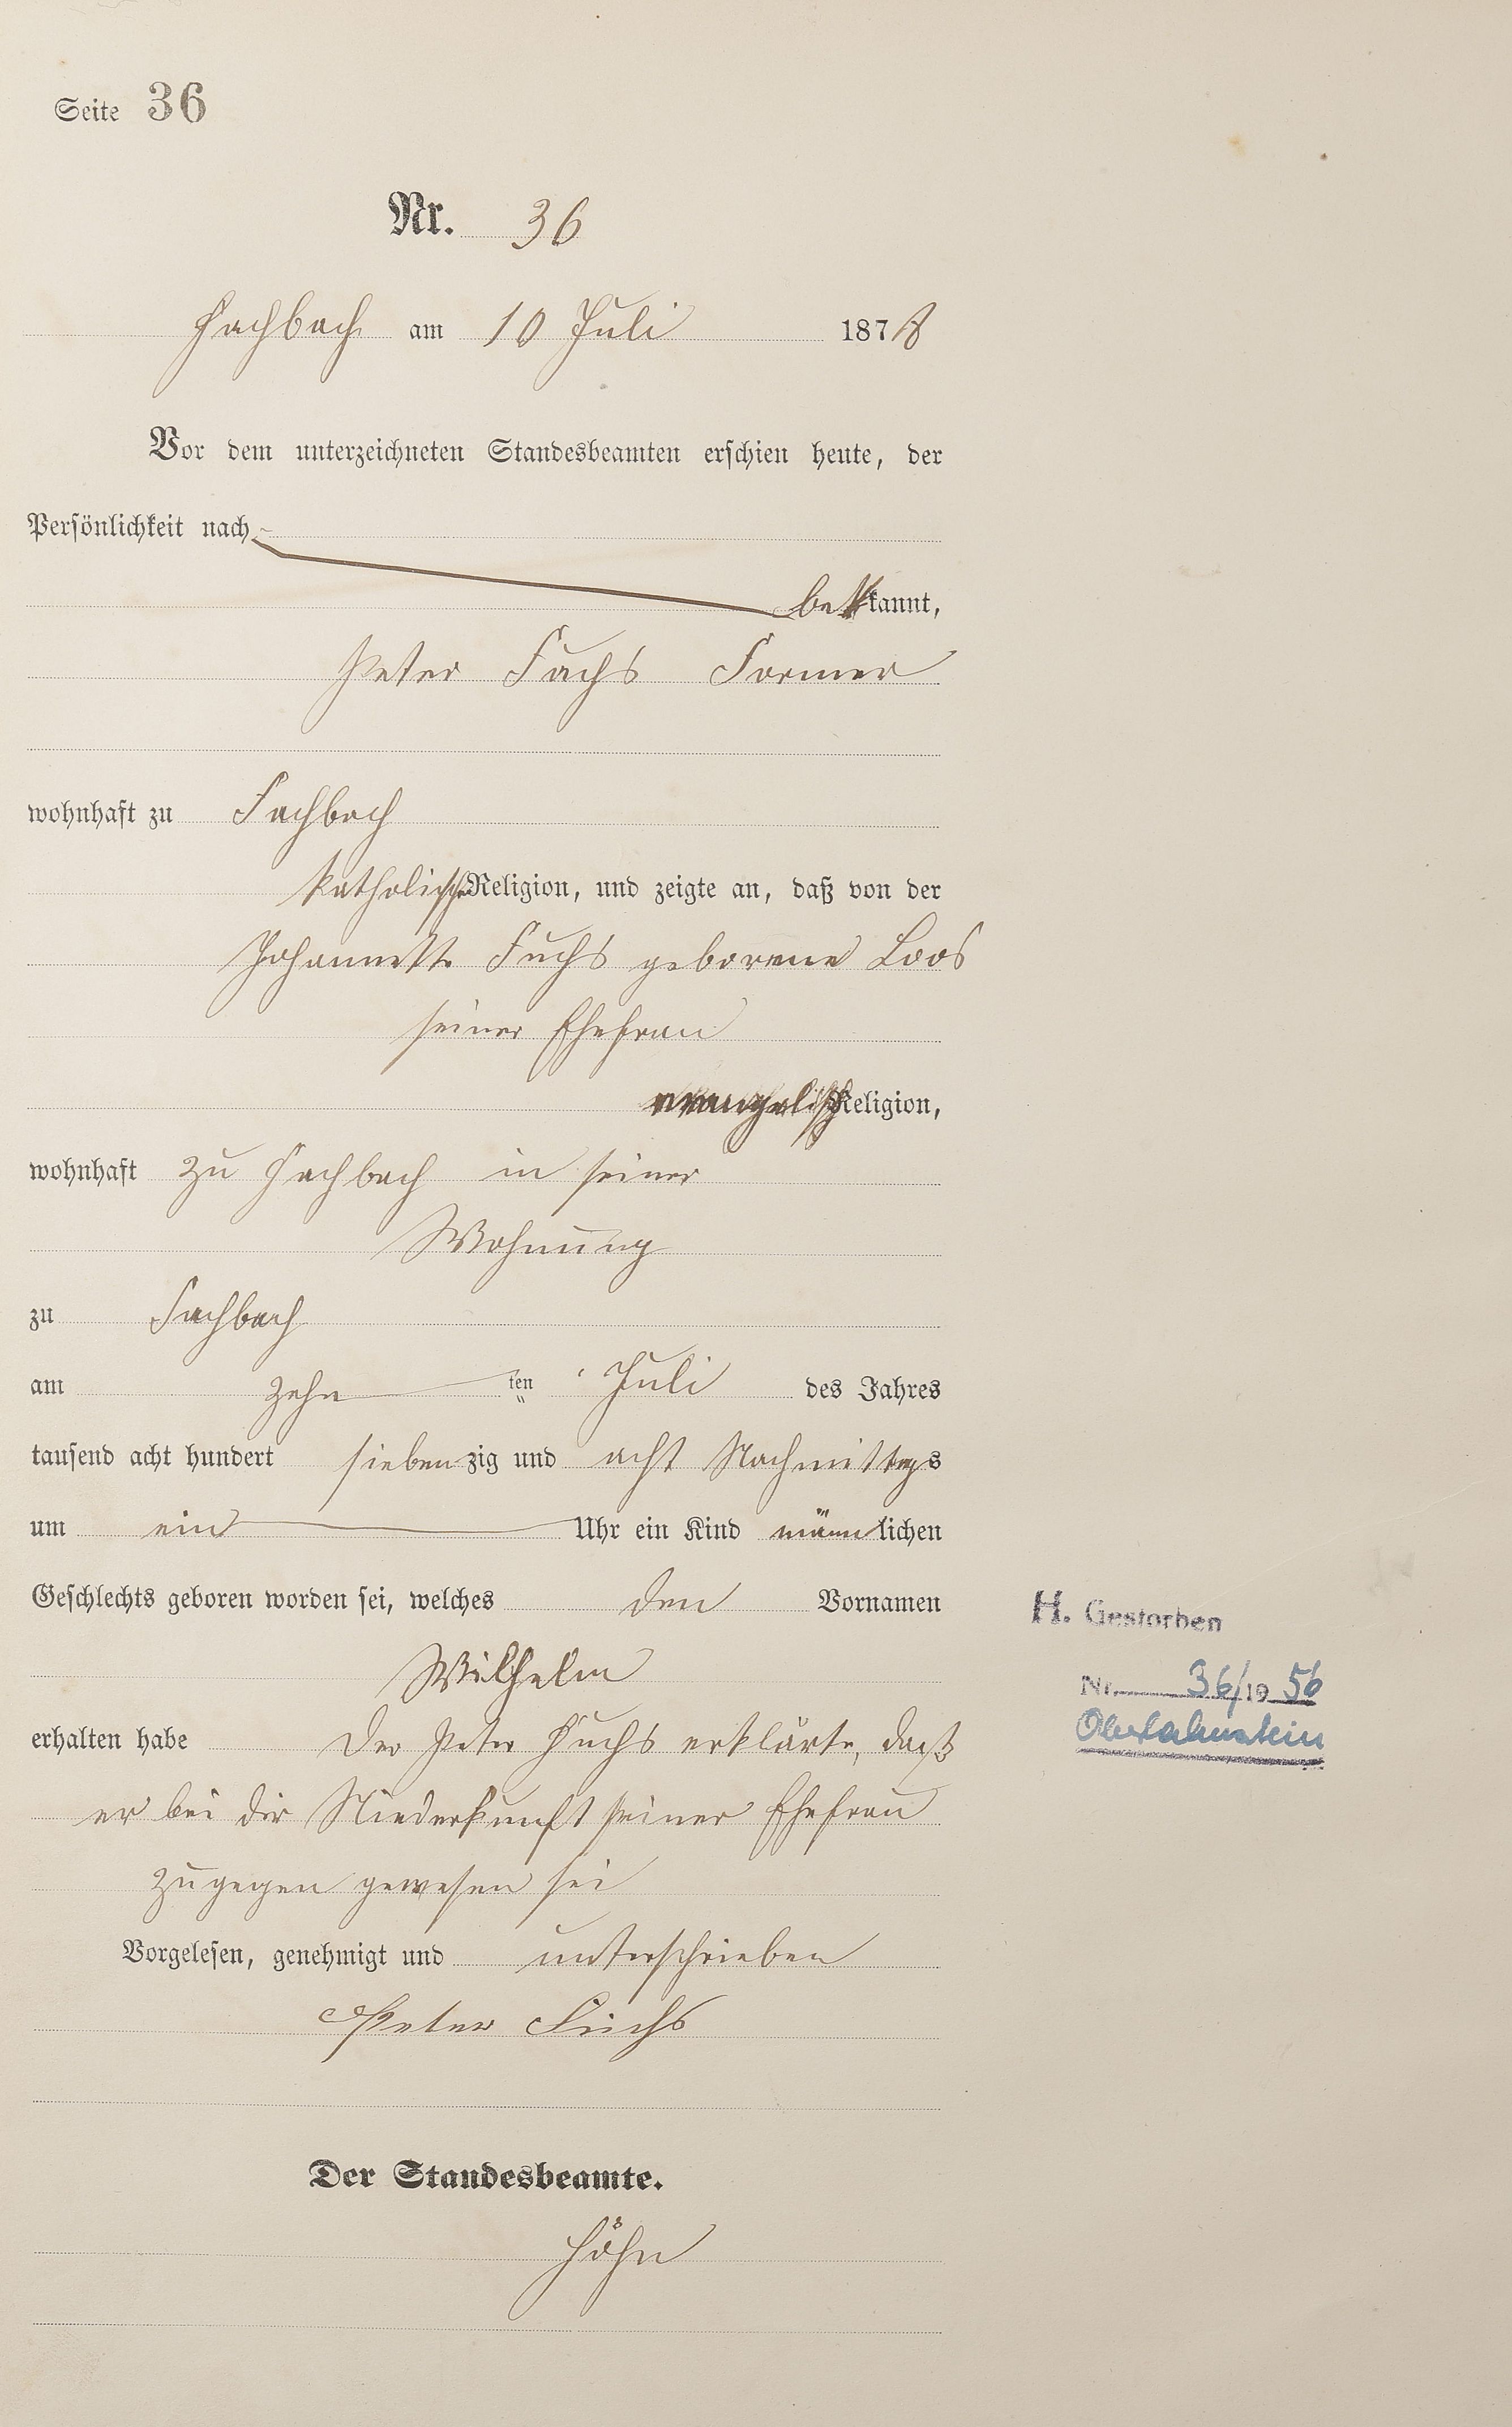 Seite 36
Nr. 36
Fachbach am 10 Juli 1878
Vor dem unterzeichneten Standesbeamten erschien heute, der
Persönlichkeit nach
bekannt,
Peter Fuchs Former
wohnhaft zu Fachbach
katholische Religion, und zeigte an, daß von der
Johannette Fuchs geborene Loos
seiner Ehefrau
evangelisch Religion,
wohnhaft zu Fachbach in seiner
Wohnung
zu Fachbach
am zehn ten Juli des Jahres
tausend acht hundert siebenzig und acht Nachmittags
um ein Uhr ein Kind männlichen
Geschlechts geboren worden sei, welches den Vornamen
Wilhelm
erhalten habe Der Peter Fuchs erklärte, daß
er bei der Niederkunft seiner Ehefrau
zugegen gewesen sei
Vorgelesen, genehmigt und unterschrieben
Peter Fuchs
Der Standesbeamte.
Höhn
H. Gestorben
Nr. 36/1956
Oberlahnstein